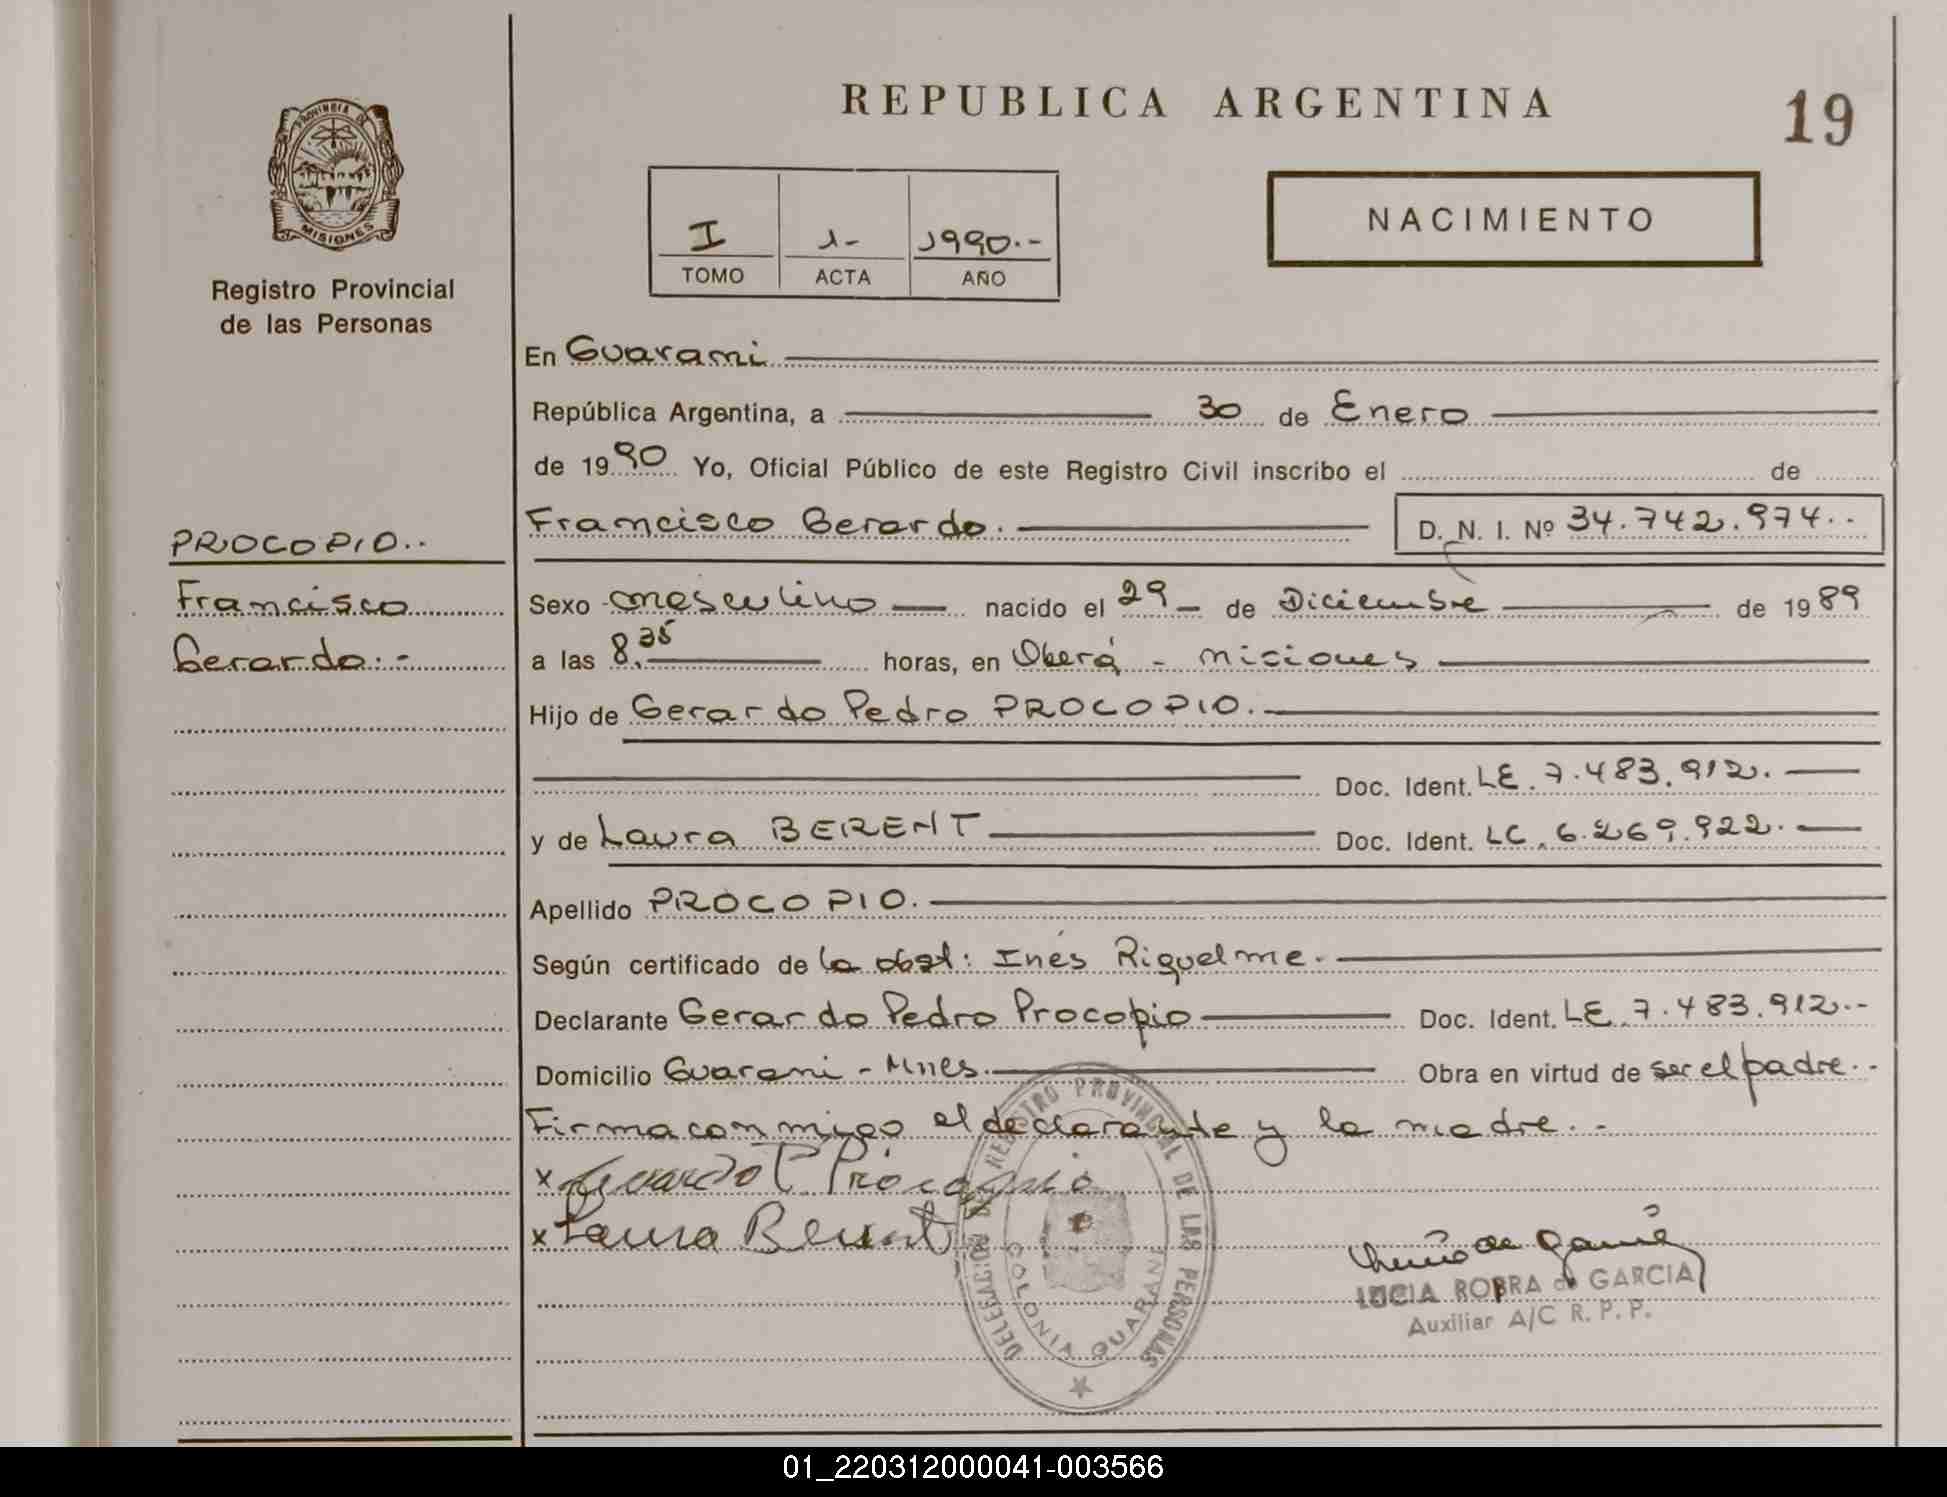 REPUBLICA ARGENTINA
19
PROVINCIA DE
MISIONES
Registro Provincial
de las Personas
I 1- 1990.-
TOMO ACTA AÑO
NACIMIENTO
En Guarani
República Argentina, a 30 de Enero
de 1990 Yo, Oficial Público de este Registro Civil inscribo el de
PROCOPIO..
Francisco
Gerardo.-
Francisco Gerardo. D. N. I. Nº 34.742.974..
Sexo masculino nacido el 29 de Diciembre de 1989
a las 8,35 horas, en Oberá - Misiones
Hijo de Gerardo Pedro PROCOPIO.
Doc. Ident. LE. 7.483.912.
y de Laura BERENT Doc. Ident. LC. 6.269.922.
Apellido PROCOPIO.
Según certificado de la obst: Inés Riquelme.
Declarante Gerardo Pedro Procopio Doc. Ident. LE. 7.483.912.-
Domicilio Guarani - Mnes. Obra en virtud de ser el padre.-
Firma con migo el declarante y la madre.-
x Gerardo P. Procopio
x Laura Berent
DELEGACION DEL REGISTRO PROVINCIAL DE LAS PERSONAS
COLONIA GUARANI
LUCIA ROBRA de GARCIA
Auxiliar A/C R. P. P.
01_220312000041-003566